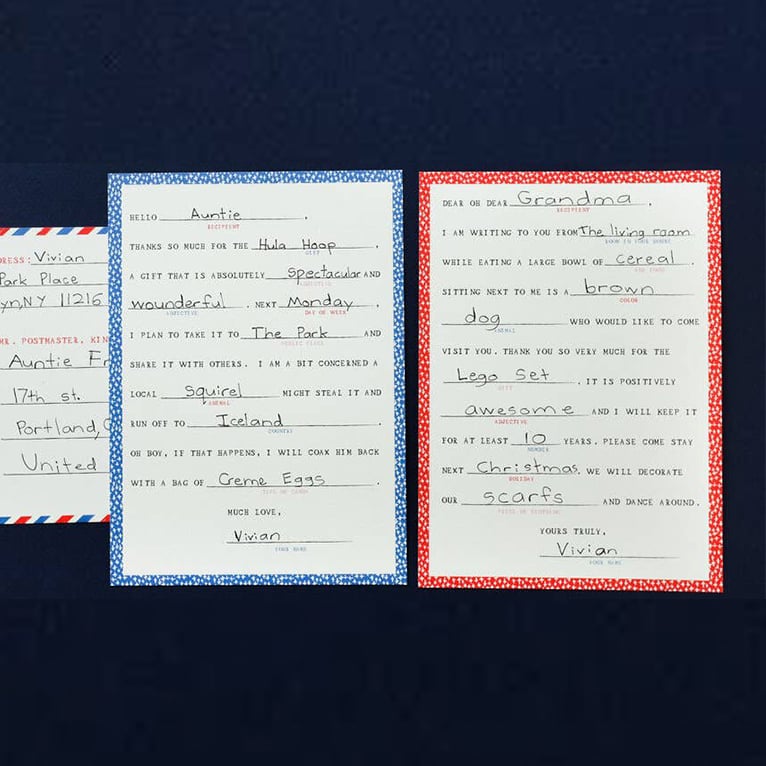 RESS: Vivian
Park Place
yn, NY 11216
MR. POSTMASTER, KIN
Auntie Fr
17th st.
Portland,
United
HELLO Auntie,
RECIPIENT
THANKS SO MUCH FOR THE Hula Hoop,
GIFT
A GIFT THAT IS ABSOLUTELY Spectacular AND
ADJECTIVE
wounderful. NEXT Monday,
ADJECTIVE DAY OF WEEK
I PLAN TO TAKE IT TO The Park AND
PUBLIC PLACE
SHARE IT WITH OTHERS. I AM A BIT CONCERNED A
LOCAL squirel MIGHT STEAL IT AND
ANIMAL
RUN OFF TO Iceland.
COUNTRY
OH BOY, IF THAT HAPPENS, I WILL COAX HIM BACK
WITH A BAG OF Creme Eggs.
TYPE OF CANDY
MUCH LOVE,
Vivian
YOUR NAME
DEAR OH DEAR Grandma,
RECIPIENT
I AM WRITING TO YOU FROM The living room
ROOM IN YOUR HOUSE
WHILE EATING A LARGE BOWL OF cereal.
SITTING NEXT TO ME IS A brown
COLOR
dog WHO WOULD LIKE TO COME
ANIMAL
VISIT YOU. THANK YOU SO VERY MUCH FOR THE
Lego Set. IT IS POSITIVELY
GIFT
awesome AND I WILL KEEP IT
ADJECTIVE
FOR AT LEAST 10 YEARS. PLEASE COME STAY
NUMBER
NEXT Christmas. WE WILL DECORATE
HOLIDAY
OUR scarfs AND DANCE AROUND.
YOURS TRULY,
Vivian
YOUR NAME